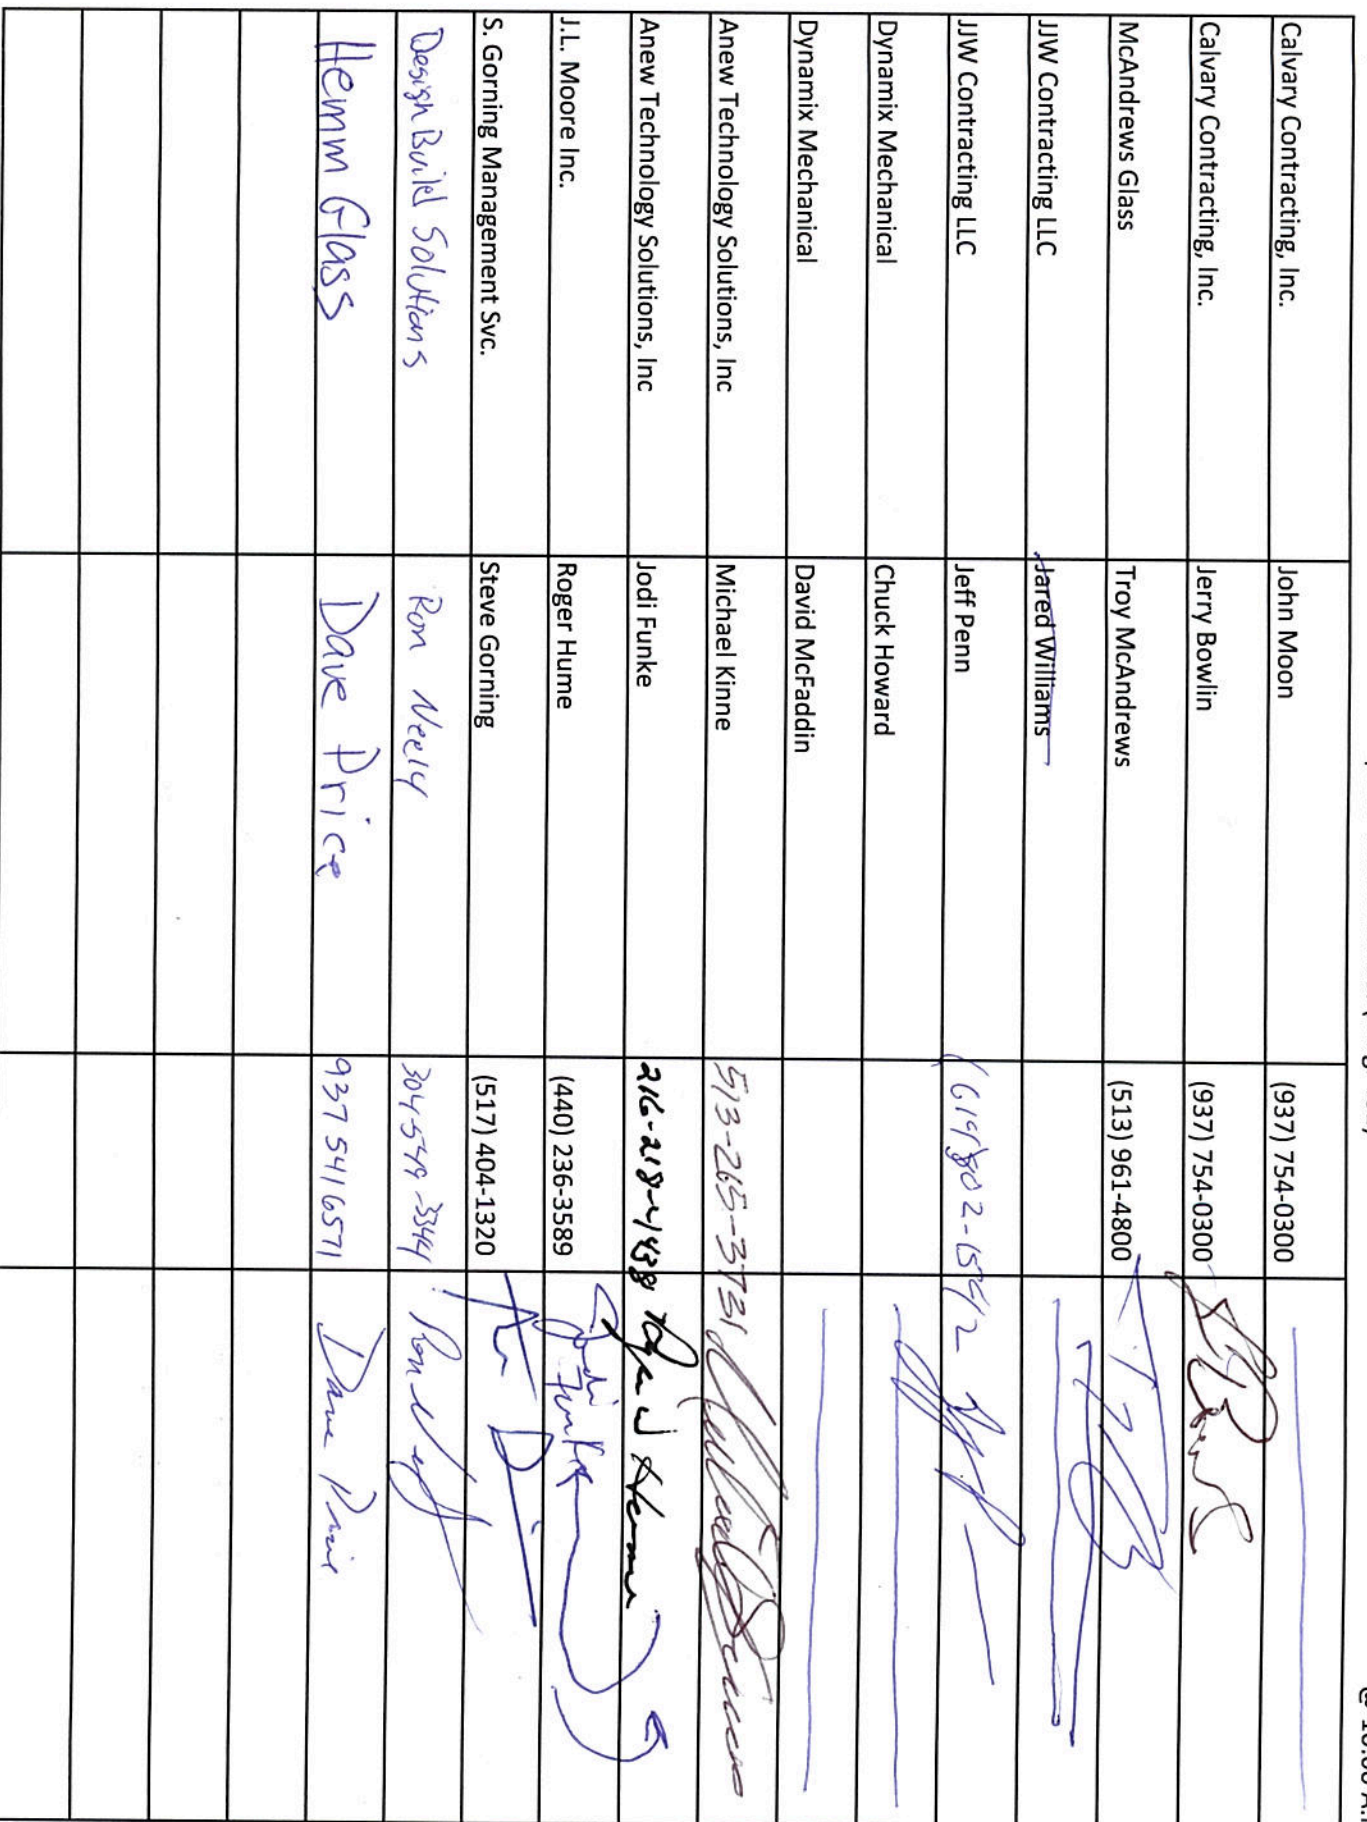 @ 10:00 A
Calvary Contracting, Inc. John Moon (937) 754-0300
Calvary Contracting, Inc. Jerry Bowlin (937) 754-0300
McAndrews Glass Troy McAndrews (513) 961-4800
JJW Contracting LLC Jared Williams
JJW Contracting LLC Jeff Penn
Dynamix Mechanical Chuck Howard
Dynamix Mechanical David McFaddin
Anew Technology Solutions, Inc Michael Kinne 513-265-3731
Anew Technology Solutions, Inc Jodi Funke
J.L. Moore Inc. Roger Hume (440) 236-3589 Jodi Funke
S. Gorning Management Svc. Steve Gorning (517) 404-1320
Design Build Solutions Ron Neely
Hemm Glass Dave Price 937 541 6571 Dave Price